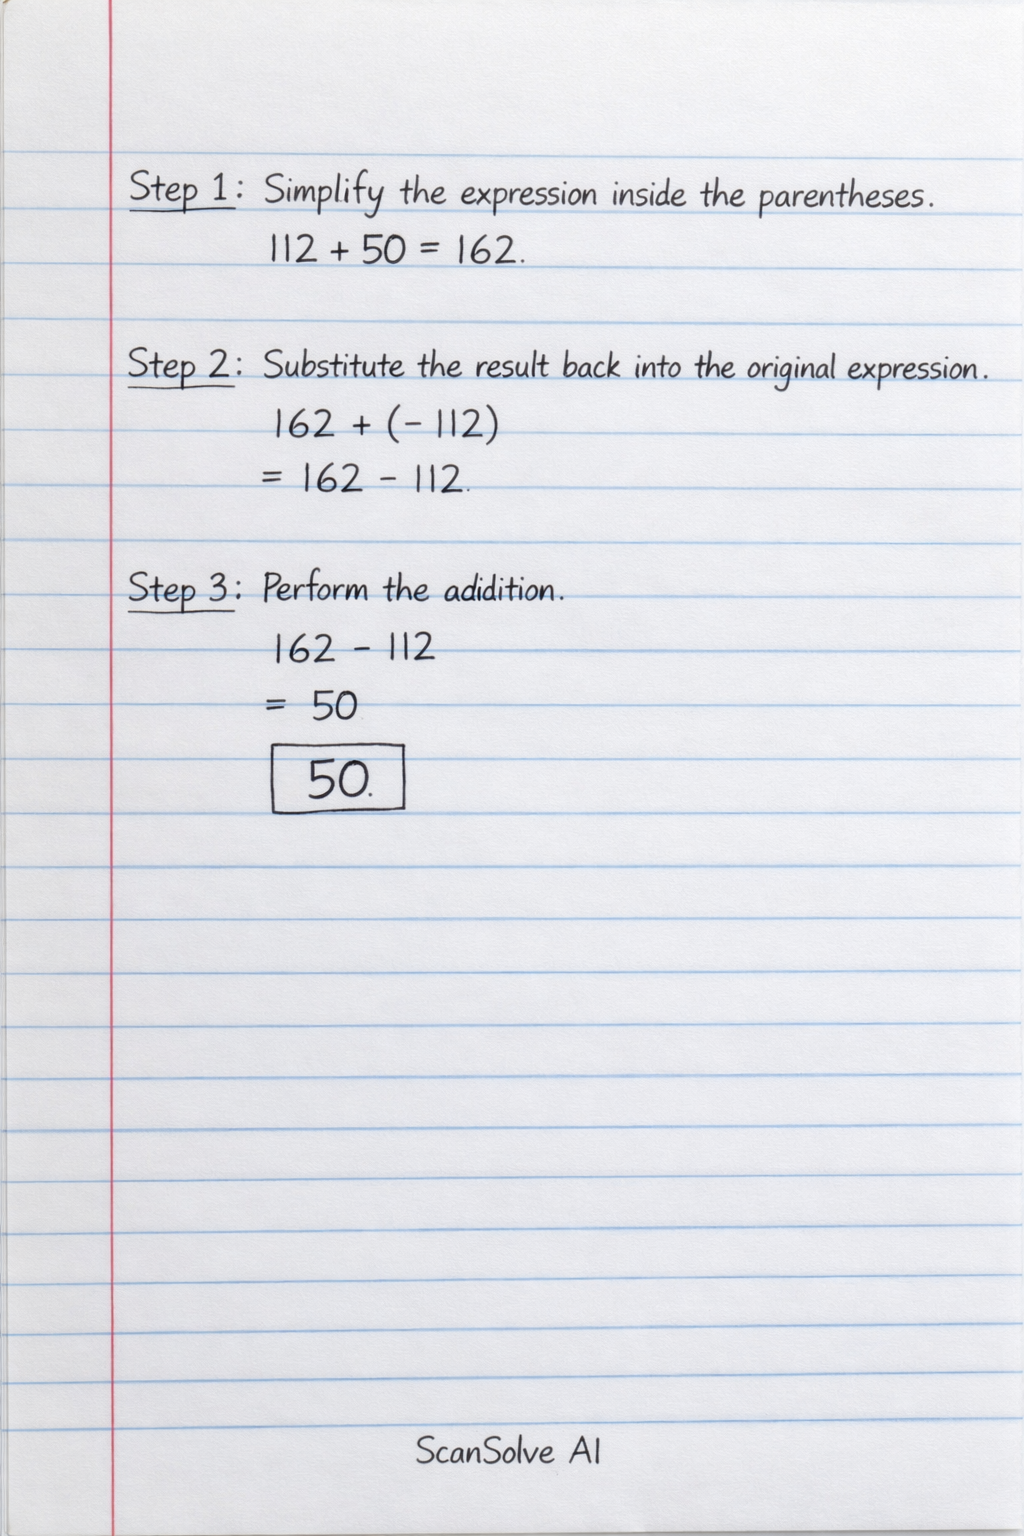 Step 1: Simplify the expression inside the parentheses.
112 + 50 = 162.
Step 2: Substitute the result back into the original expression.
162 + (- 112)
= 162 - 112.
Step 3: Perform the adidition.
162 - 112
= 50
50.
ScanSolve AI